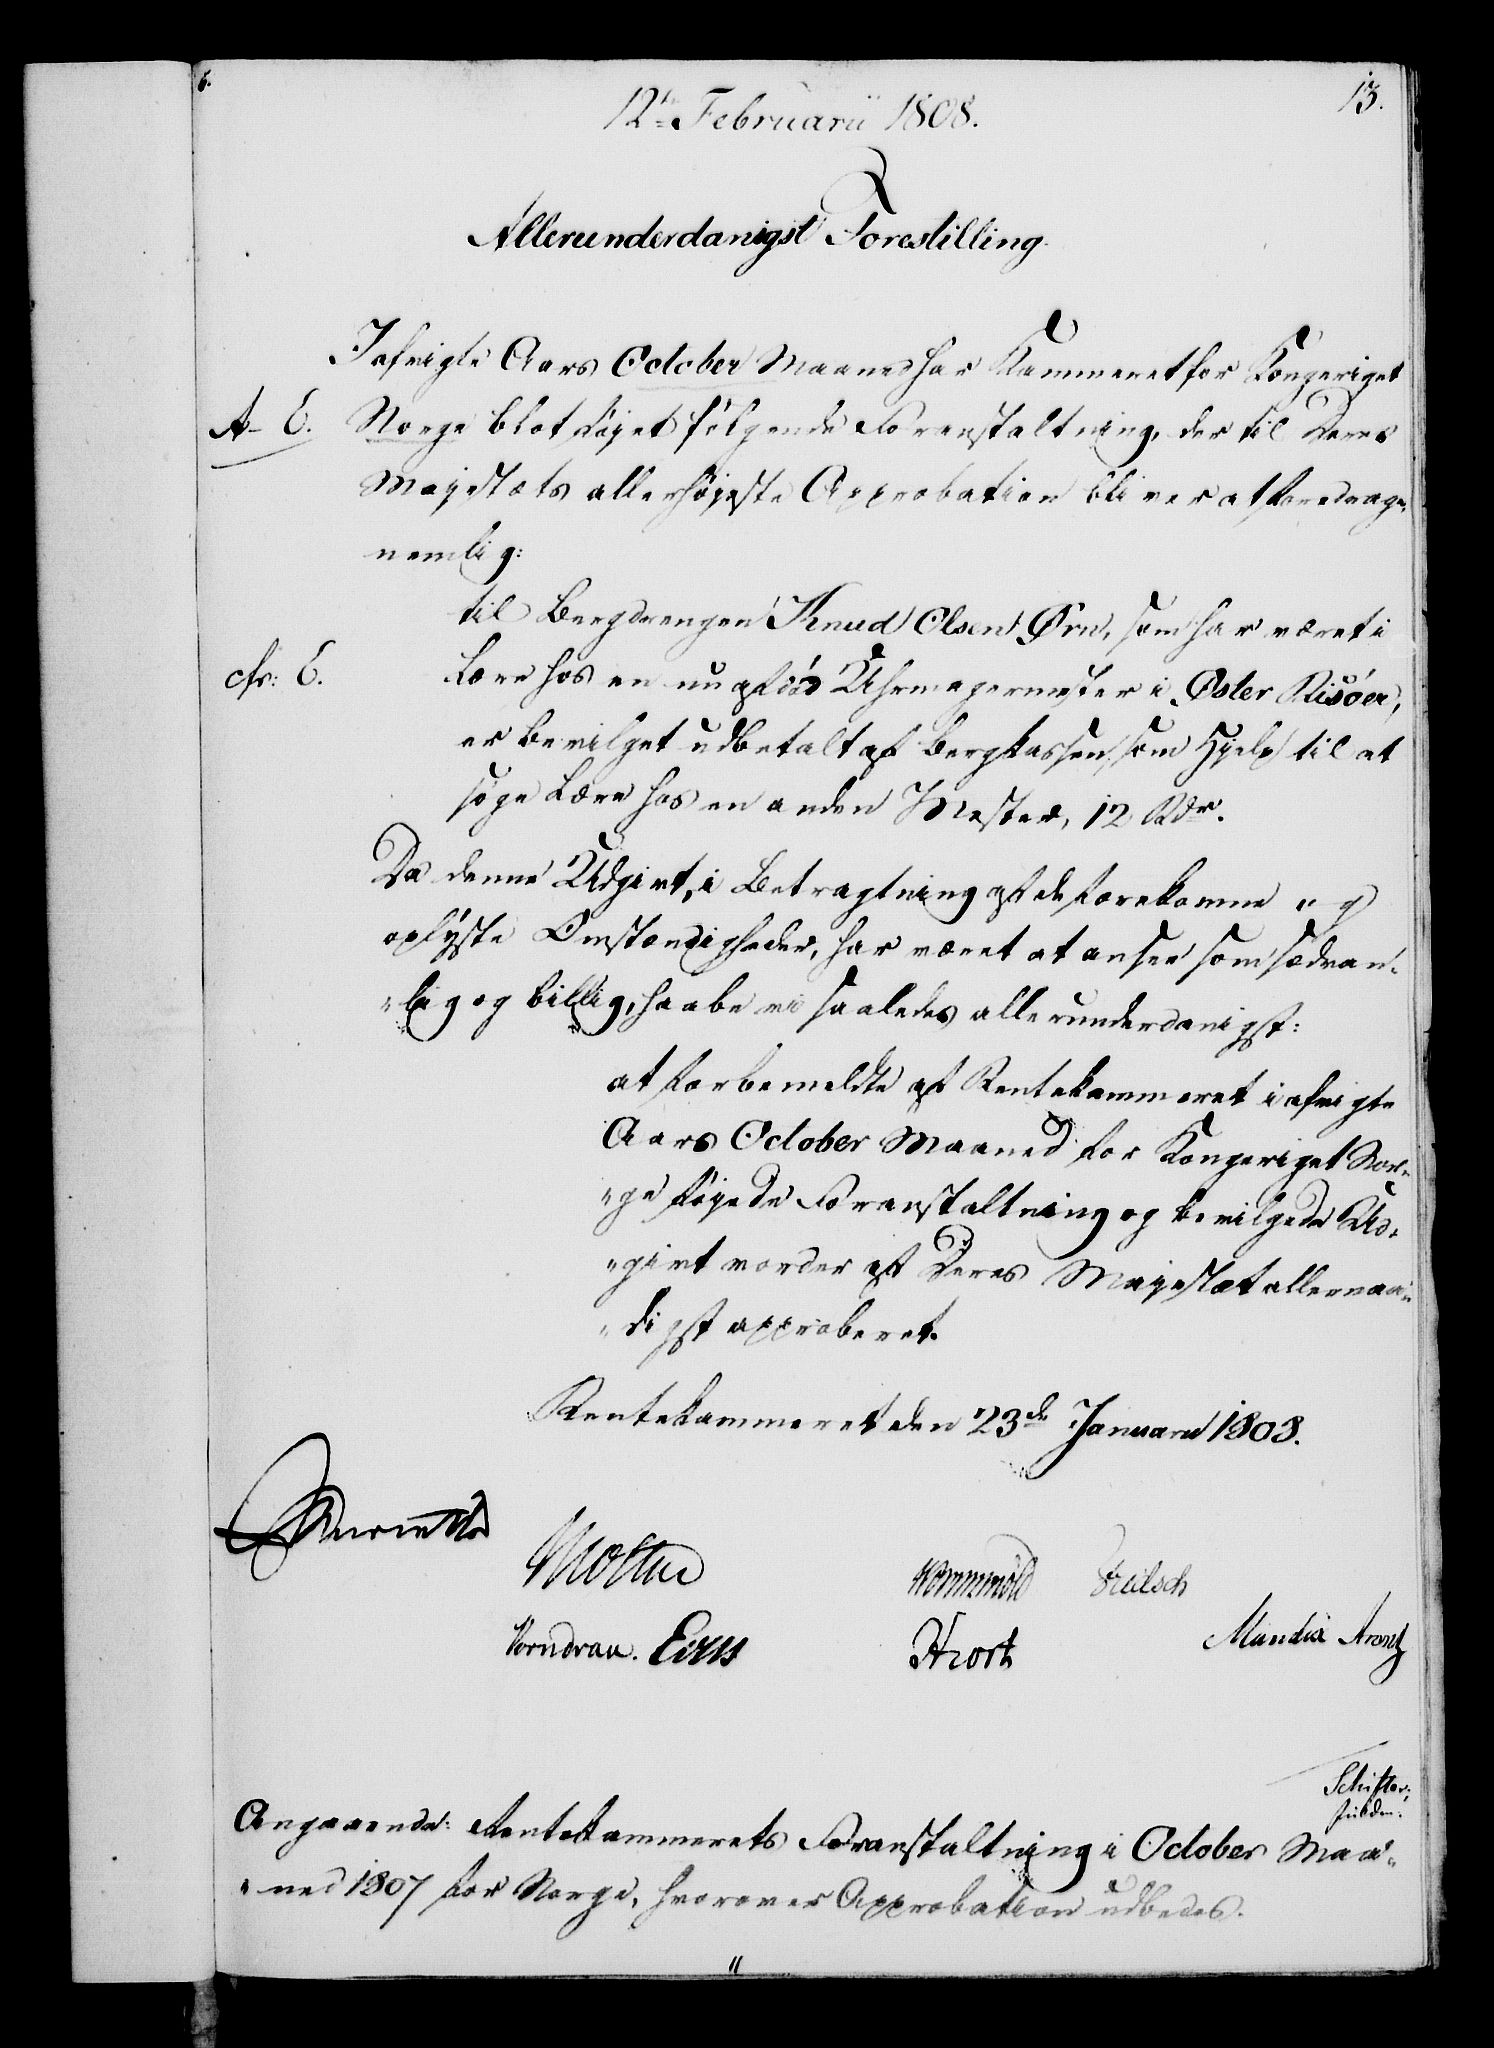 6.
13.
12te Februarii 1808.
Allerunderdanigst Forestilling
I afvigte Aars October Maaned har Kammeret for Kongeriget
A-E. Norge blot føjet følgende Foranstaltning, der til Deres
Majestæts allerhøjeste Approbation bliver at foredrage,
nemlig:
til Bergdrengen Knud Olsen Ørn, som har været i
cfr: E. Lære hos en nu afdöd Uhrmagermester i Øster Risöer,
er bevilget udbetalt af Bergkassen, som Hjelp til at
søge Lære hos en anden Mester, 12 Rdr.
Da denne Udgivt, i Betragtning af de forekomne og
oplyste Omstændigheder, har været at ansee som sædvan-
"lig og billig, haabe vi saaledes allerunderdanigst:
at forbemeldte af Rentekammeret i afvigte
Aars October Maaned for Kongeriget Nor-
"ge føjede Foranstaltning og bevilgede Ud-
"givt vorder af Deres Majestæt allernaa-
"digst approberet.
Rentekammeret den 23de Januarii 1808.
Reventlow
Moltke
Wormskiold Freilsch
Vorndran. Eeg
Hiort
Mandix Arentz
Schifter,
Angaaende: Rentekammerets Foranstaltning i October Maa-
"ned 1807 for Norge, hvorover Approbation udbedes.